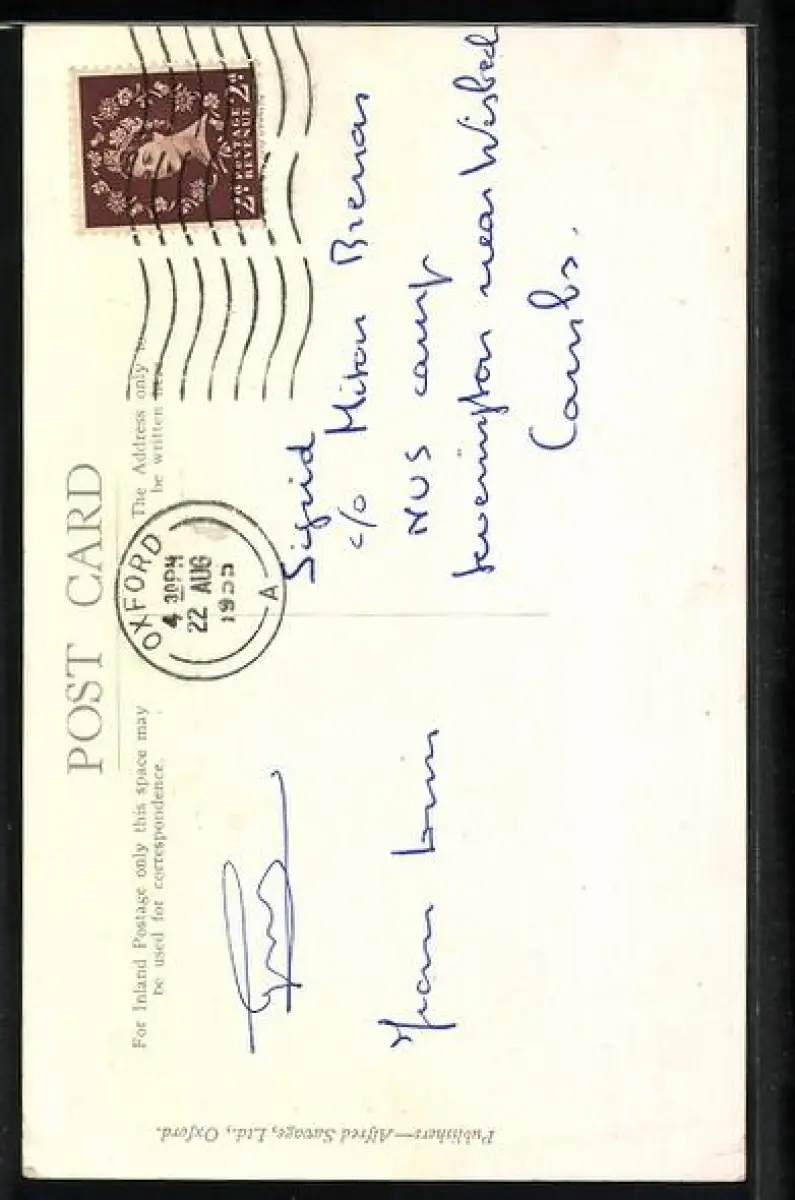 POST CARD
For Inland Postage only this space may
be used for correspondence.
The Address only to
be written here
2D POSTAGE REVENUE 2D
OXFORD
4 30PM
22 AUG
195
A
Sigrid
c/o Milton
NUS camp
near Wisbech
Cambs.
Publishers—Alfred Savage, Ltd., Oxford.